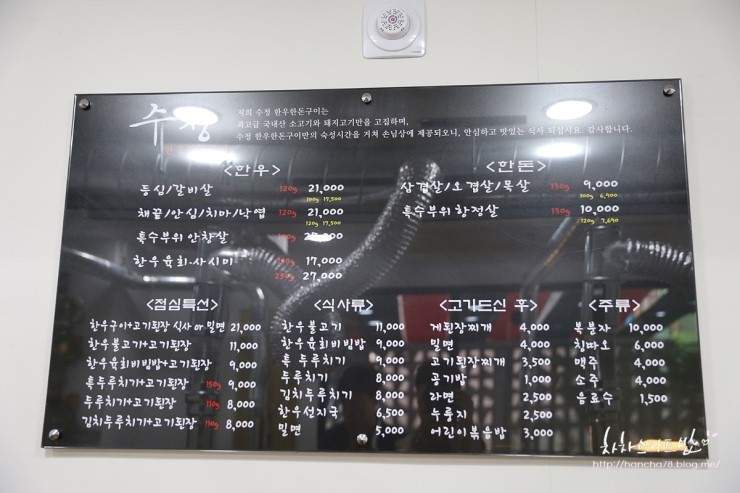 수정
저희 수정 한우한돈구이는
최고급 국내산 소고기와 돼지고기만을 고집하며,
수정 한우한돈구이만의 숙성시간을 거쳐 손님상에 제공되오니, 안심하고 맛있는 식사 되십시요. 감사합니다.
<한우>
등심/갈비살 120g 21,000
100g 17,500
채끝/안심/치마/낙엽 120g 21,000
120g 17,500
특수부위 안창살
한우육회·사시미 17,000
27,000
<한돈>
삼겹살/오겹살/목살 130g 9,000
100g 6,900
특수부위 항정살 130g 10,000
120g 7,690
<점심특선>
한우구이+고기된장 식사 or 밀면 21,000
한우불고기+고기된장 11,000
한우육회비빔밥+고기된장 9,000
특두루치기+고기된장 150g 9,000
두루치기+고기된장 110g 8,000
김치두루치기+고기된장 110g 8,000
<식사류>
한우불고기 11,000
한우육회비빔밥 9,000
특 두루치기 9,000
두루치기 8,000
김치두루치기 8,000
한우선지국 6,500
밀면 5,000
<고기드신 후>
게된장찌개 4,000
밀면 4,000
고기된장찌개 3,500
공기밥 1,000
라면 2,500
누룽지 2,500
어린이볶음밥 3,000
<주류>
복분자 10,000
칭따오 6,000
맥주 4,000
소주 4,000
음료수 1,500
http://hancha78.blog.me/